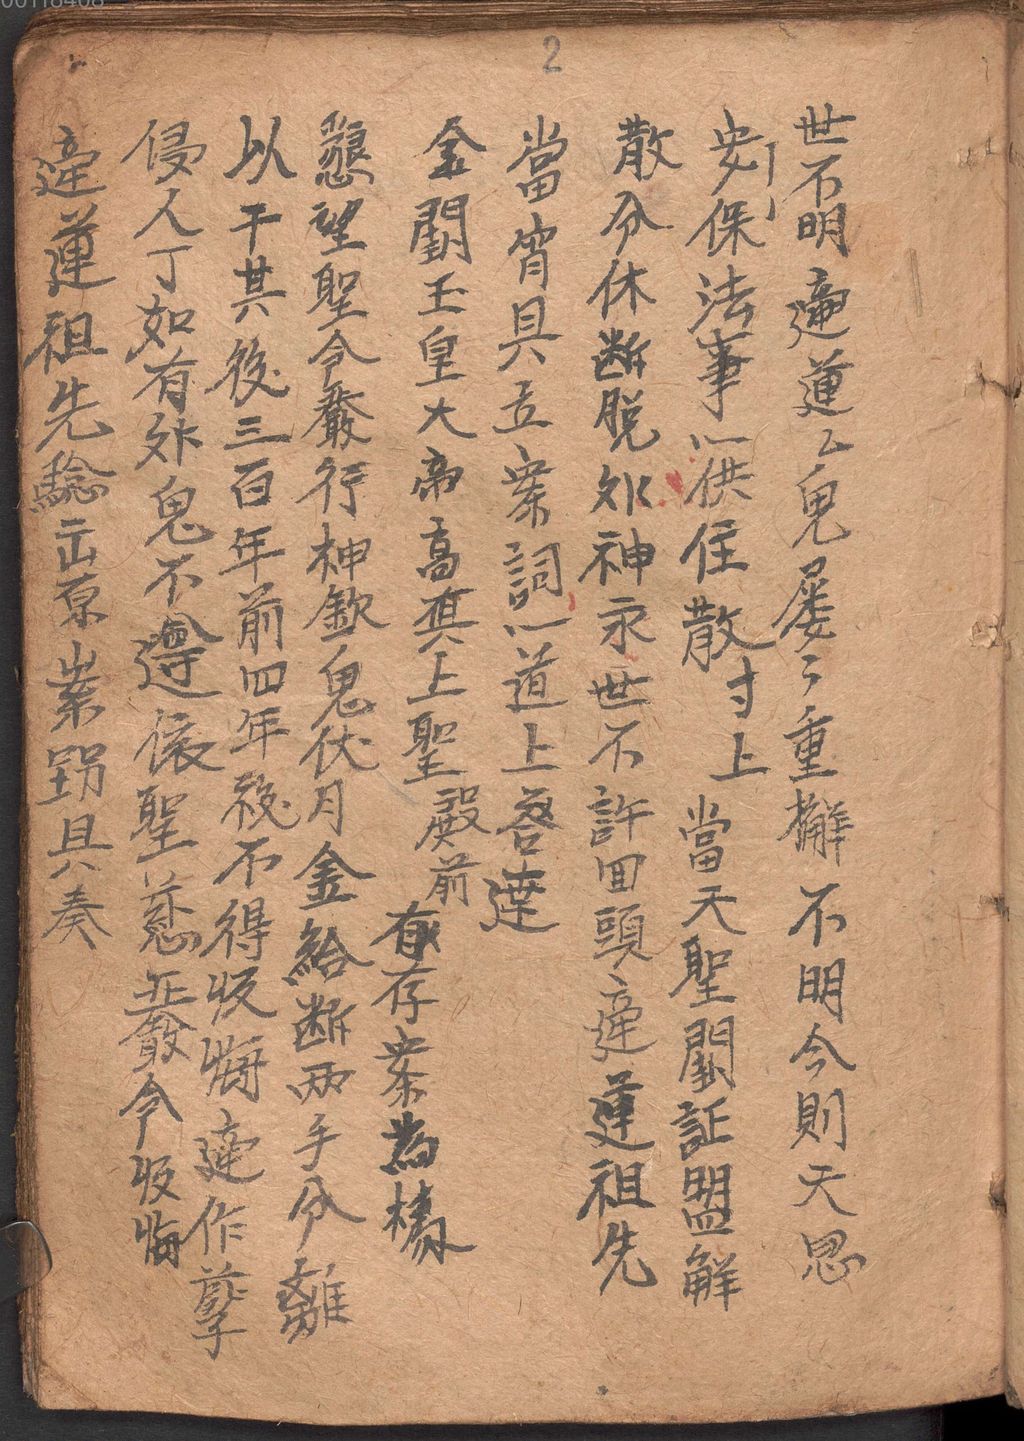 00118408
2
世不明違運之鬼屡々重觧不明今則天恩
安保法事一供住散寸上當天聖闕証盟觧
散分休断脱外神永世不許囬頭違運祖先
當宵具立案詞一道上啓達
金闕玉皇大帝高真上聖殿前 存案為據
懇望聖令嚴行神欽鬼伏月金給断兩手分離
以干其後三百年前四年後不得收悔違作孽
侵人丁如有外鬼不遵依聖慈嚴令收悔
違運祖先 具奏